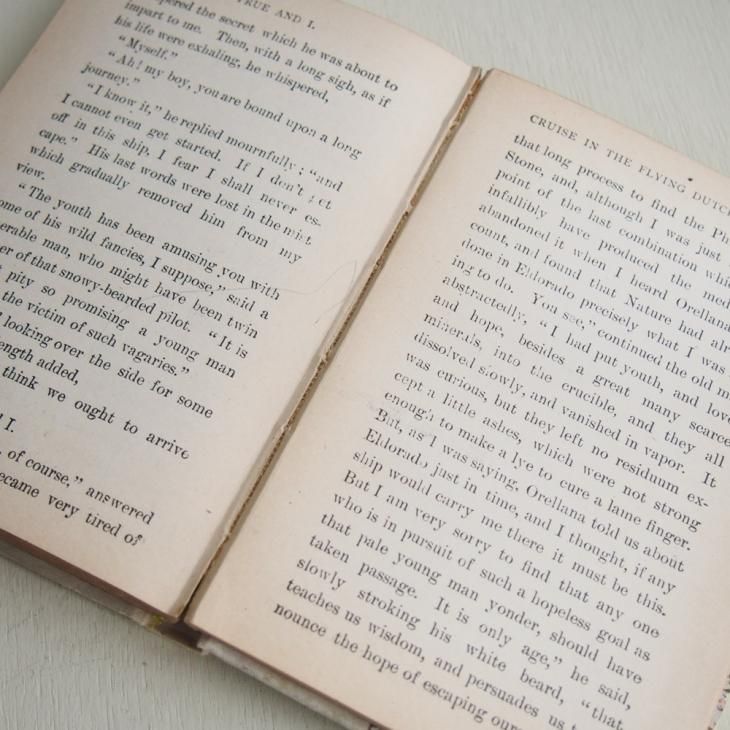 TRUE AND I.
the secret which he was about to
impart to me. Then, with a long sigh, as if
his life were exhaling, he whispered,
"Myself."
"Ah! my boy, you are bound upon a long
journey."
"I know it," he replied mournfully; "and
I cannot even get started. If I don't get
off in this ship, I fear I shall never es-
cape." His last words were lost in the mist
which gradually removed him from my
view.
"The youth has been amusing you with
ome of his wild fancies, I suppose," said a
erable man, who might have been twin
er of that snowy-bearded pilot. "It is
pity so promising a young man
the victim of such vagaries."
looking over the side for some
ength added,
think we ought to arrive
I.
of course," answered
ecame very tired of
CRUISE IN THE FLYING DUTC
that long process to find the Ph
Stone, and, although I was just
point of the last combination whi
infallibly have produced the med
abandoned it when I heard Orellana
count, and found that Nature had alr
done in Eldorado precisely what I was
ing to do. You see," continued the old m
abstractedly, "I had put youth, and love
and hope, besides a great many scarce
minerals, into the crucible, and they all
dissolved slowly, and vanished in vapor. It
was curious, but they left no residuum ex-
cept a little ashes, which were not strong
enough to make a lye to cure a lame finger.
But, as I was saying, Orellana told us about
Eldorado just in time, and I thought, if any
ship would carry me there it must be this.
But I am very sorry to find that any one
who is in pursuit of such a hopeless goal as
that pale young man yonder, should have
taken passage. It is only age," he said,
slowly stroking his white beard, "that
teaches us wisdom, and persuades us
nounce the hope of escaping our